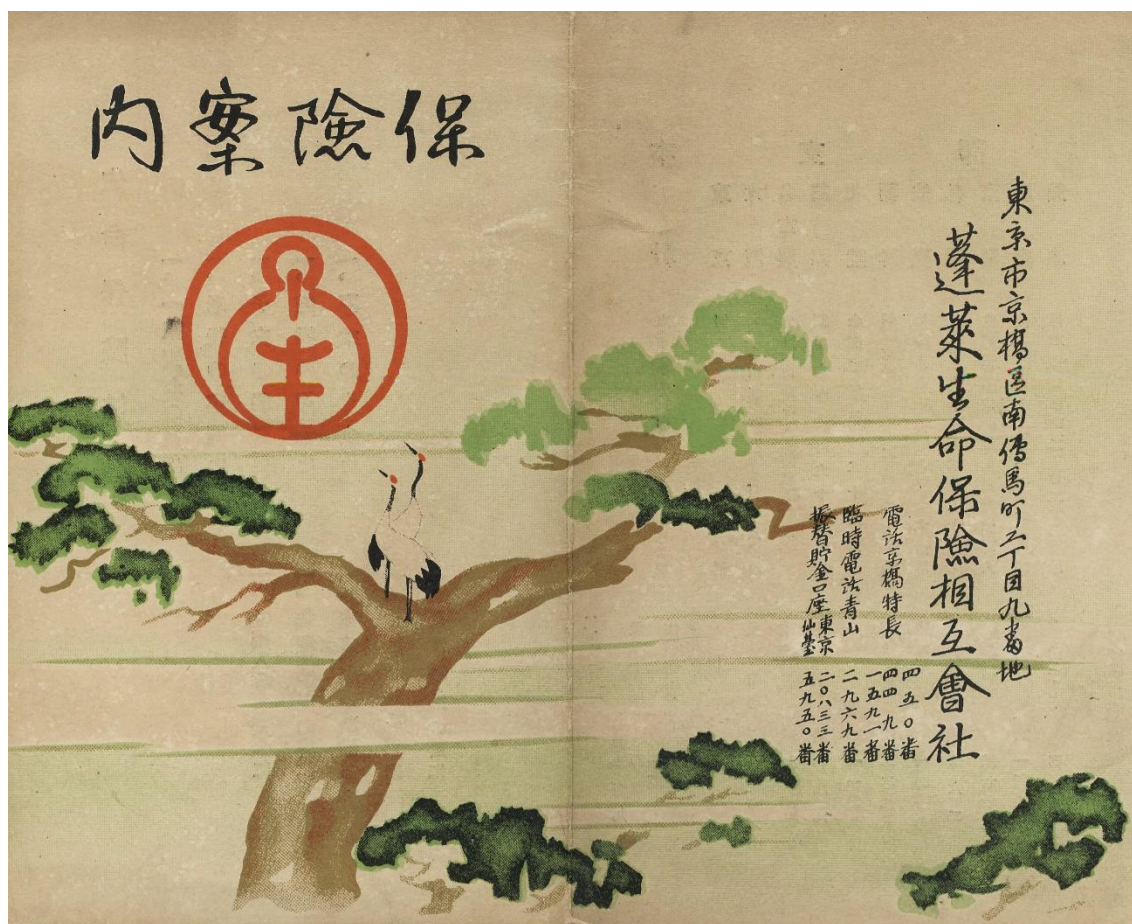 保險案内
東京市京橋區南傳馬町二丁目九番地
蓬萊生命保險相互會社
電話京橋特長 四五〇番
四四九番
一五九一番
臨時電話青山 二九六九番
振替貯金口座 東京 二〇八三三番
仙臺 五九五〇番